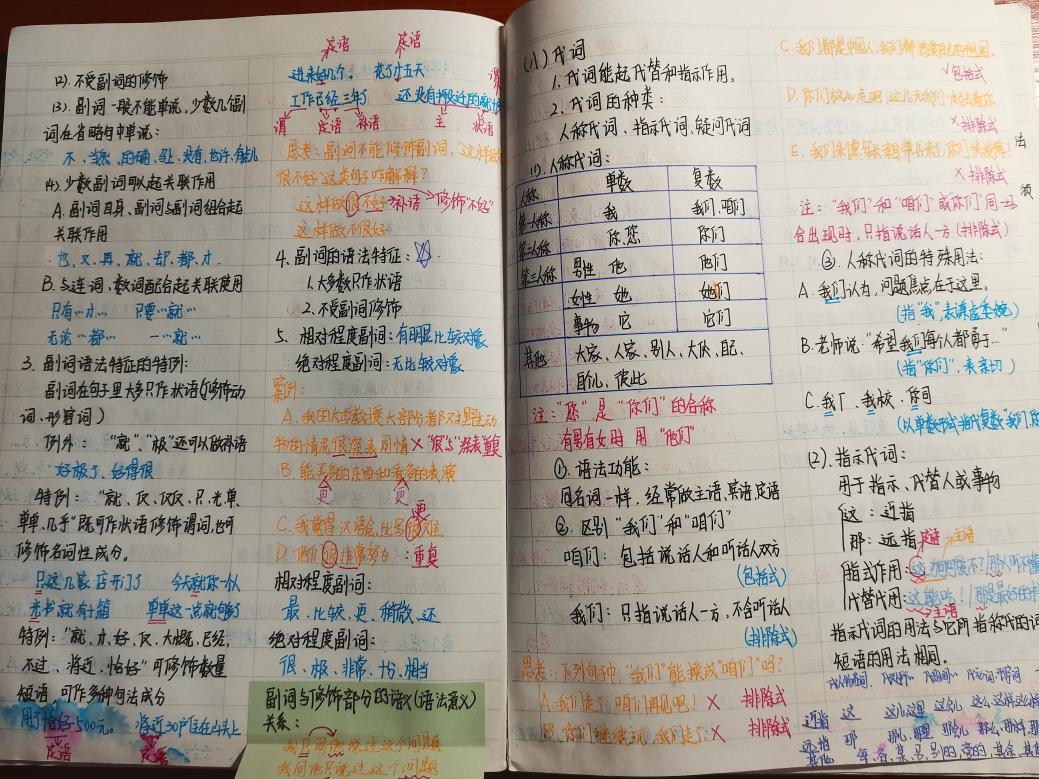 (2). 不受副词的修饰
(3). 副词一般不能单说，少数几个副
词在省略句中单说：
不、当然、的确、经、没有、也许、有点儿
(4). 少数副词可以起关联作用
A. 副词自身、副词与副词组合起
关联作用
也、又、再、就、却、都、才
B. 与连词、数词配合起关联使用
只有…才… 只要…就…
无论…都… 一…就…
3. 副词语法特征的特例：
副词在句子里大多只作状语(修饰动
词、形容词)
例外： "就"、"极"还可以做补语
好极了、好得很
特例： "就、仅、仅仅、只、光、单、
单单、几乎"既可作状语修饰谓词，也可
修饰名词性成分。
只这几家店开门了 今天就你一人
光书就有十箱 单单这一点就够了
特例："就、才、好、仅、大概、已经、
不过、将近、恰好"可修饰数量
短语，可作多种句法成分
用了恰好500元。 将近30户住在山上
定语
定语 定语
进来好几个。 花了十五天
工作已经三年了 还没有搬迁的
谓 定语 补语 主 状语
思考：副词不能修饰副词，"这样做
很不好"这类句子咋解释？
这样做很不好 补语 修饰"不好"
这样做不很好
4. 副词的语法特征：
1. 大多数只作状语
2. 不受副词修饰
5. 相对程度副词：有明显比较对象
绝对程度副词：无比较对象
案例：
A. 我的大学教授大部分都对野生动
物的情况很深表同情 ×
B. 能美多的东西和看多的表演
更 更
C. 我觉得汉语会比写
更
D. 他们很非常努力 ：重复
相对程度副词：
最、比较、更、稍微、还
绝对程度副词：
很、极、非常、十分、相当
副词与修饰部分的语义(语法意义)
关系：
我只同他说过这个问题
我同他只说过这个问题
(八) 代词
1. 代词能起代替和指示作用。
2. 代词的种类：
人称代词、指示代词、疑问代词
(1). 人称代词：
人称 单数 复数
第一人称 我 我们、咱们
第二人称 你、您 你们
第三人称 男性 他 他们
女性 她 她们
事物 它 它们
其他 大家、人家、别人、大伙、自己、
自个儿、彼此
注："您"是"你们"的合称
有男有女时 用"他们"
①. 语法功能：
同名词一样，经常做主语、宾语、定语
②. 区别"我们"和"咱们"
咱们：包括说话人和听话人双方
(包括式)
我们：只指说话人一方，不含听话人
(排除式)
思考：下列句中，"我们"能换成"咱们"吗？
A. 我们走了，咱们再见吧！ × 排除式
B. 你们继续玩，我们走了。 × 排除式
C. 我们都是中国人，我们都热爱自己的祖国。
√包括式
D. 你们放心走吧，这几天我们一起去看你
×排除式
E.
×排除式
法
须
注："我们"和"咱们"或"你们"同一场
合出现时，只指说话人一方(排除式)
③. 人称代词的特殊用法：
A. 我们认为，问题焦点在于这里。
(指"我"，表谦虚委婉)
B. 老师说："希望我们每个人都勇于…"
(指"你们"，表亲切)
C. 我厂、我校、你司
(以单数形式当代复数"我们、你
(2). 指示代词：
用于指示、代替人或事物
这：近指
那：远指
定语 主语
指示作用：
代替作用：这能吃！ 那是最好的
主语
指示代词的用法与它所指称代的词
短语的用法相同。
近指 这 这儿、这里 这会儿 这么、这样
远指 那 那儿、那里 那会儿 那么、那样
其他 每、各、某、另、别的、旁的、其余、其